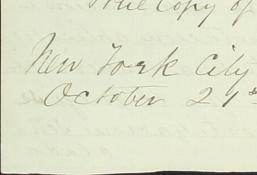 True Copy of
New York City
October 21st